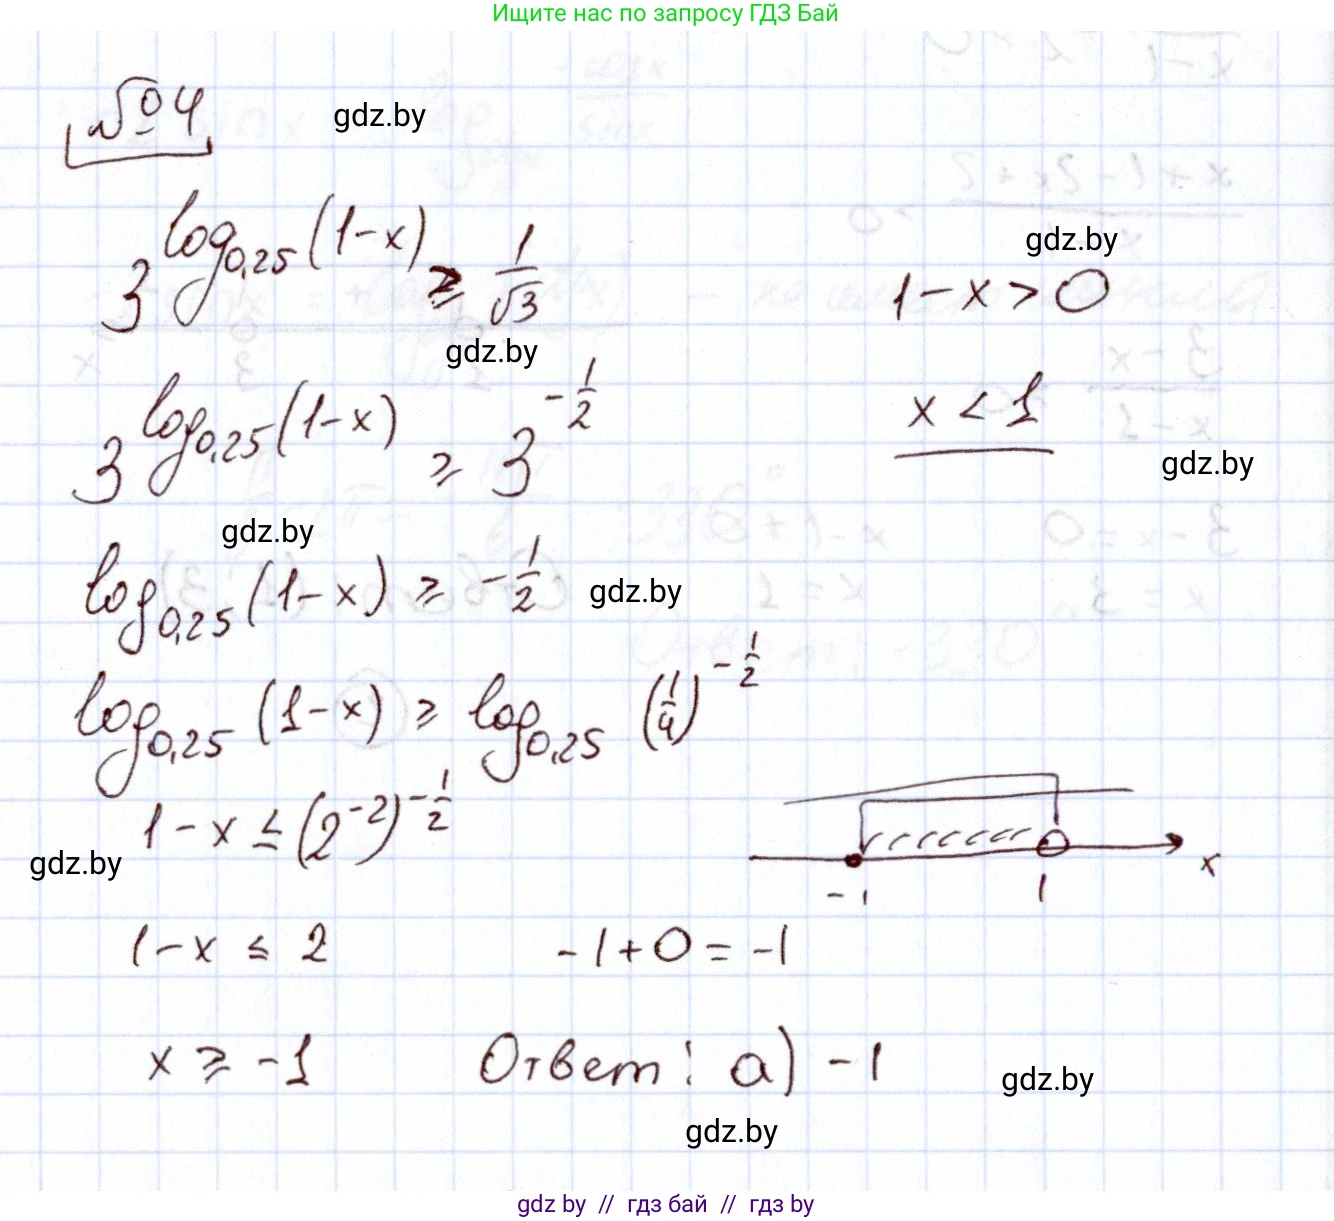 Ищите нас по запросу ГДЗ Бай
№ 4
gdz.by
3^log₀,₂₅(1-x) ≥ 1/√3
gdz.by
1-x>0
gdz.by
3^log₀,₂₅(1-x) ≥ 3^(-1/2)
x<1
gdz.by
gdz.by
log₀,₂₅(1-x) ≥ -1/2
gdz.by
log₀,₂₅(1-x) ≥ log₀,₂₅(1/4)^(-1/2)
1-x ≤ (2⁻²)^(-1/2)
gdz.by
-1 1 x
1-x ≤ 2
-1+0=-1
x ≥ -1
Ответ: а) -1
gdz.by
gdz.by
gdz by // гдз бай // гдз by